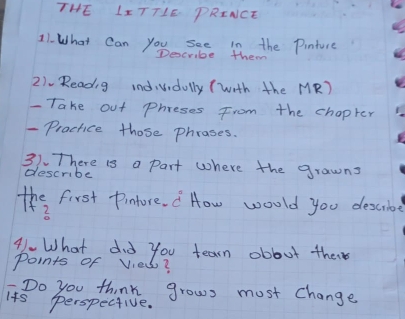 THE LITTLE PRINCE
1)- What can you see in the Pinture
Describe them
2)- Readig individully (with the MR)
- Take out Phreses From the chapter
- Practice those Phrases.
3)- There is a Part where the grawns
describe
the first Pinture. ¿ How would you describe
it ?
4)- What did you team obbut their
Points of View?
- Do you think grows must change
its perspective.